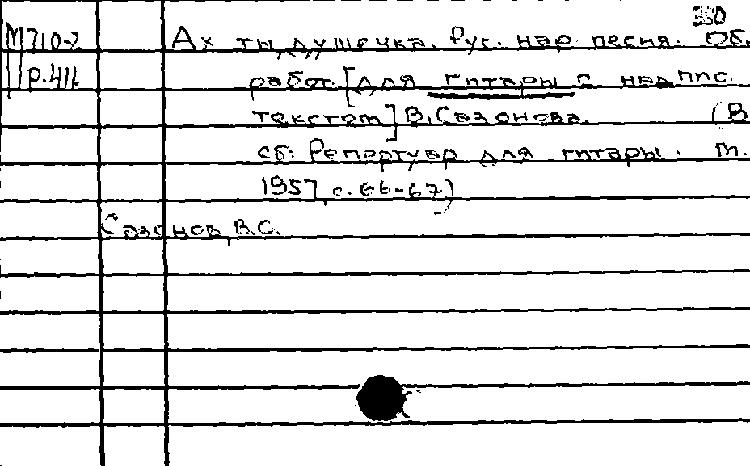 М710-2
Ах ты, душечка. Рус. нар. песня. Об.
р.411
работ. [для гитары с надпис.
текстом] В. Сазонова. (В
сб: Репертуар для гитары. М.
1957, с. 66-67)
Сазонов, В.С.